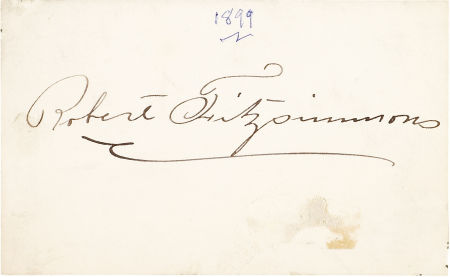 1899
Robert Fitzsimmons